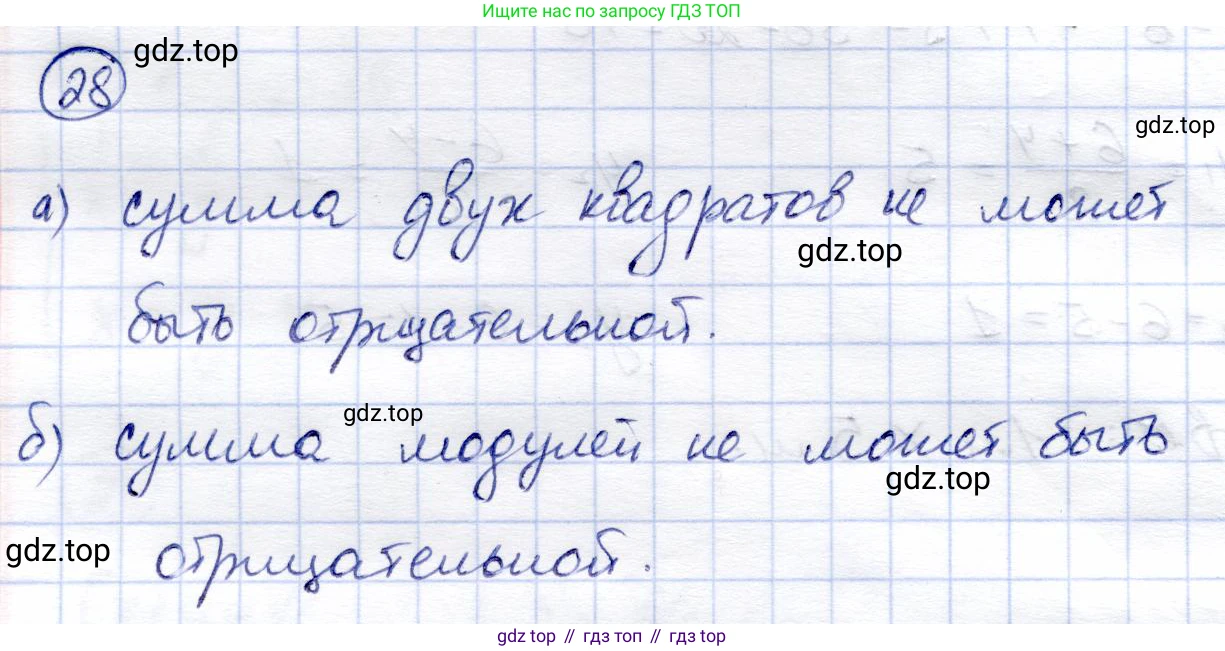 Ищите нас по запросу ГДЗ ТОП
28 gdz.top
gdz.top
а) сумма двух квадратов не может
gdz.top
быть отрицательной.
gdz.top
б) сумма модулей не может быть
gdz.top
gdz.top
отрицательной.
gdz top // гдз топ // гдз top